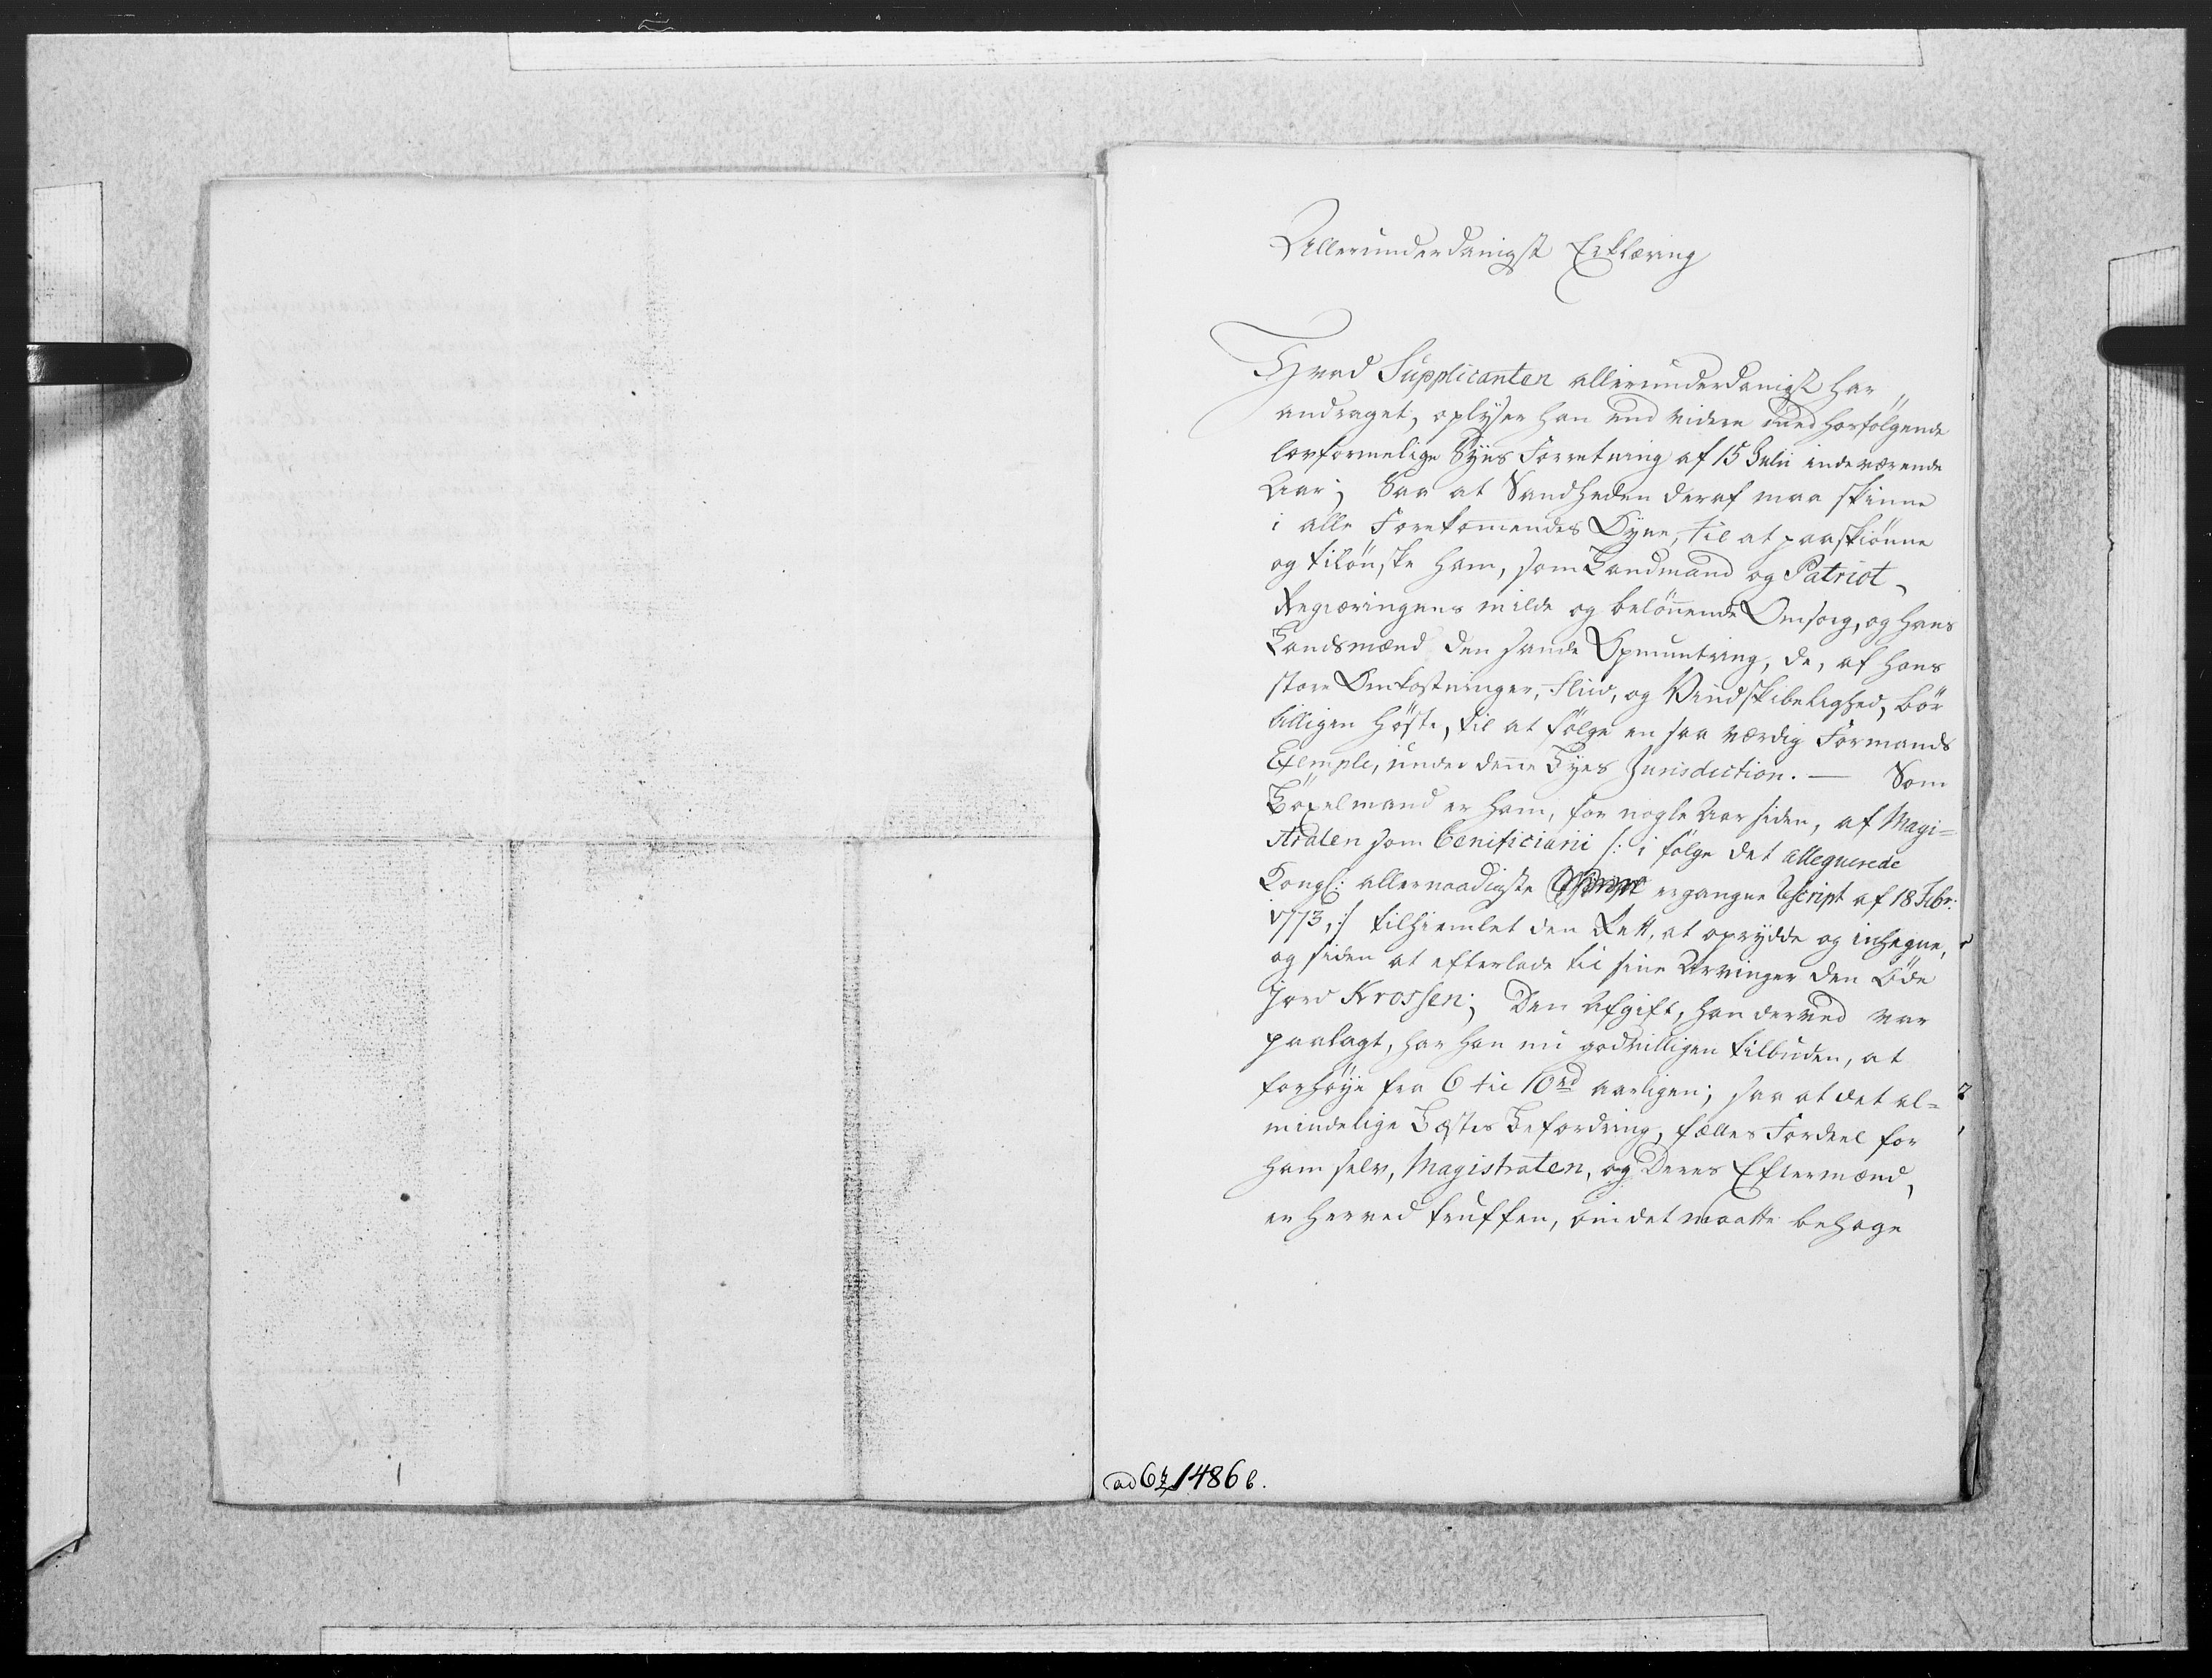 Allerunderdanigst Erklæring
Hvad Supplicanten allerunderdanigst har
andraget, oplyser han end videre med hosfølgende
lovformelige Syns Forretning af 15 Julii indeværende
Aar; Saa at Sandheden deraf maa skinne
i alle Forekommendes Øyne, til at paaskiønne
og tilønske ham, som Landmand og Patriot,
Regieringens milde og belønnende Omsorg, og hans
Landsmænd den sande Opmuntring, de, af hans
store Omkostninger, Fliid, og Vindskibelighed, bør
billigen høste, til at følge en saa værdig Formands
Exemple, under denne Byes Jurisdiction. — Som
Bøxelmand er ham, for nogle Aar siden, af Magi=
straten som beneficiarii /: i følge det alleguerede
Kongl: allernaadigste ergangne Rescript af 18 Febr:
1773, :/ tilhiemlet den Rett, at oprydde og inhegne,
og siden at efterlade til sine Arvinger den Øde
Jord Krossen; Den Afgift, han derved var
paalagt, har han nu godvilligen tilbuden, at
forhøye fra 6 til 10 rd aarligen; saa at det al=
mindelige Bæstes Befordring, fælles Fordeel for
ham selv, Magistraten, og Deres Eftermænd,
er herved truffen, om det maatte behage
ad 6 1486 b.
1